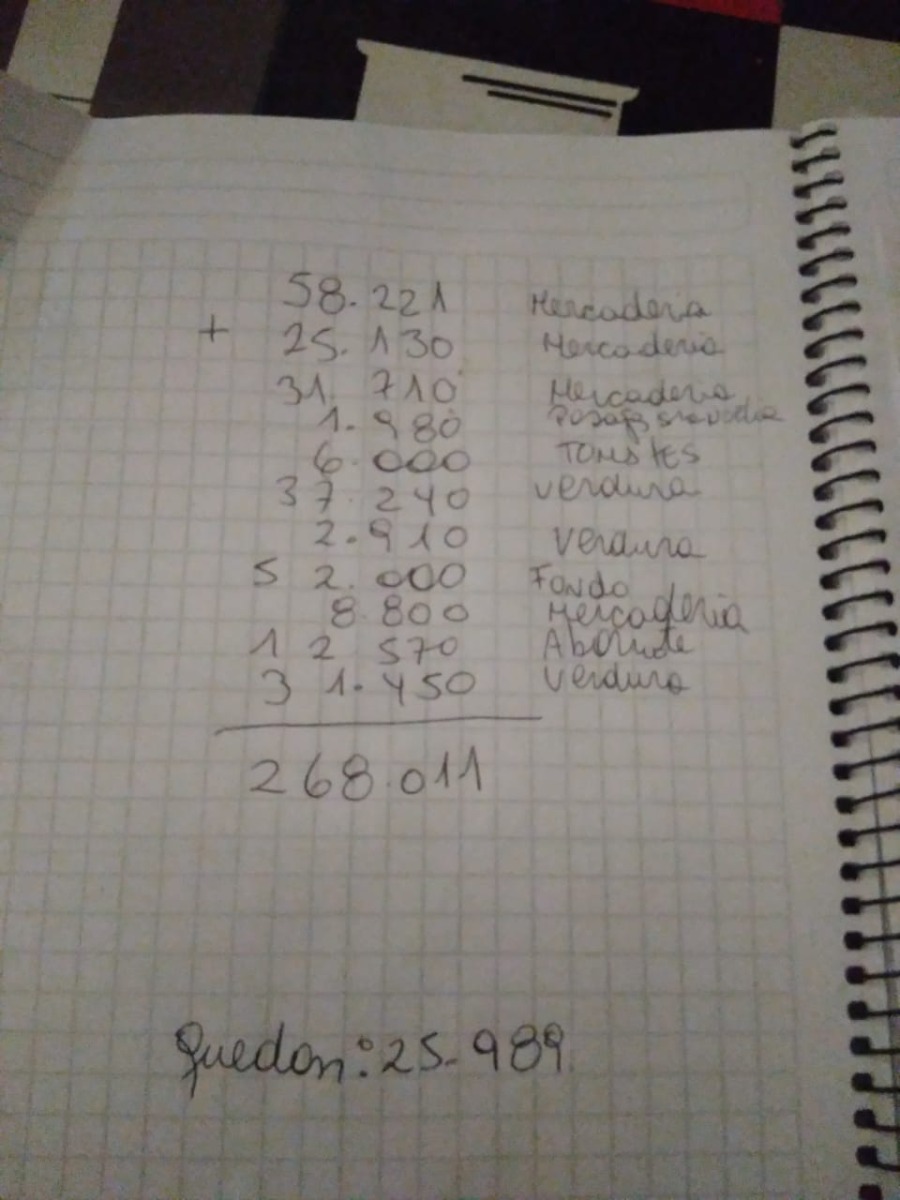 58.221 Mercaderia
+ 25.130 Mercaderia
31.710 Mercaderia
1.980
6.000
37.240 verdura
2.910 verdura
52.000 Fondo
8.800 Mercaderia
12 570
31.450 verdura
268.011
Quedan: 25.989